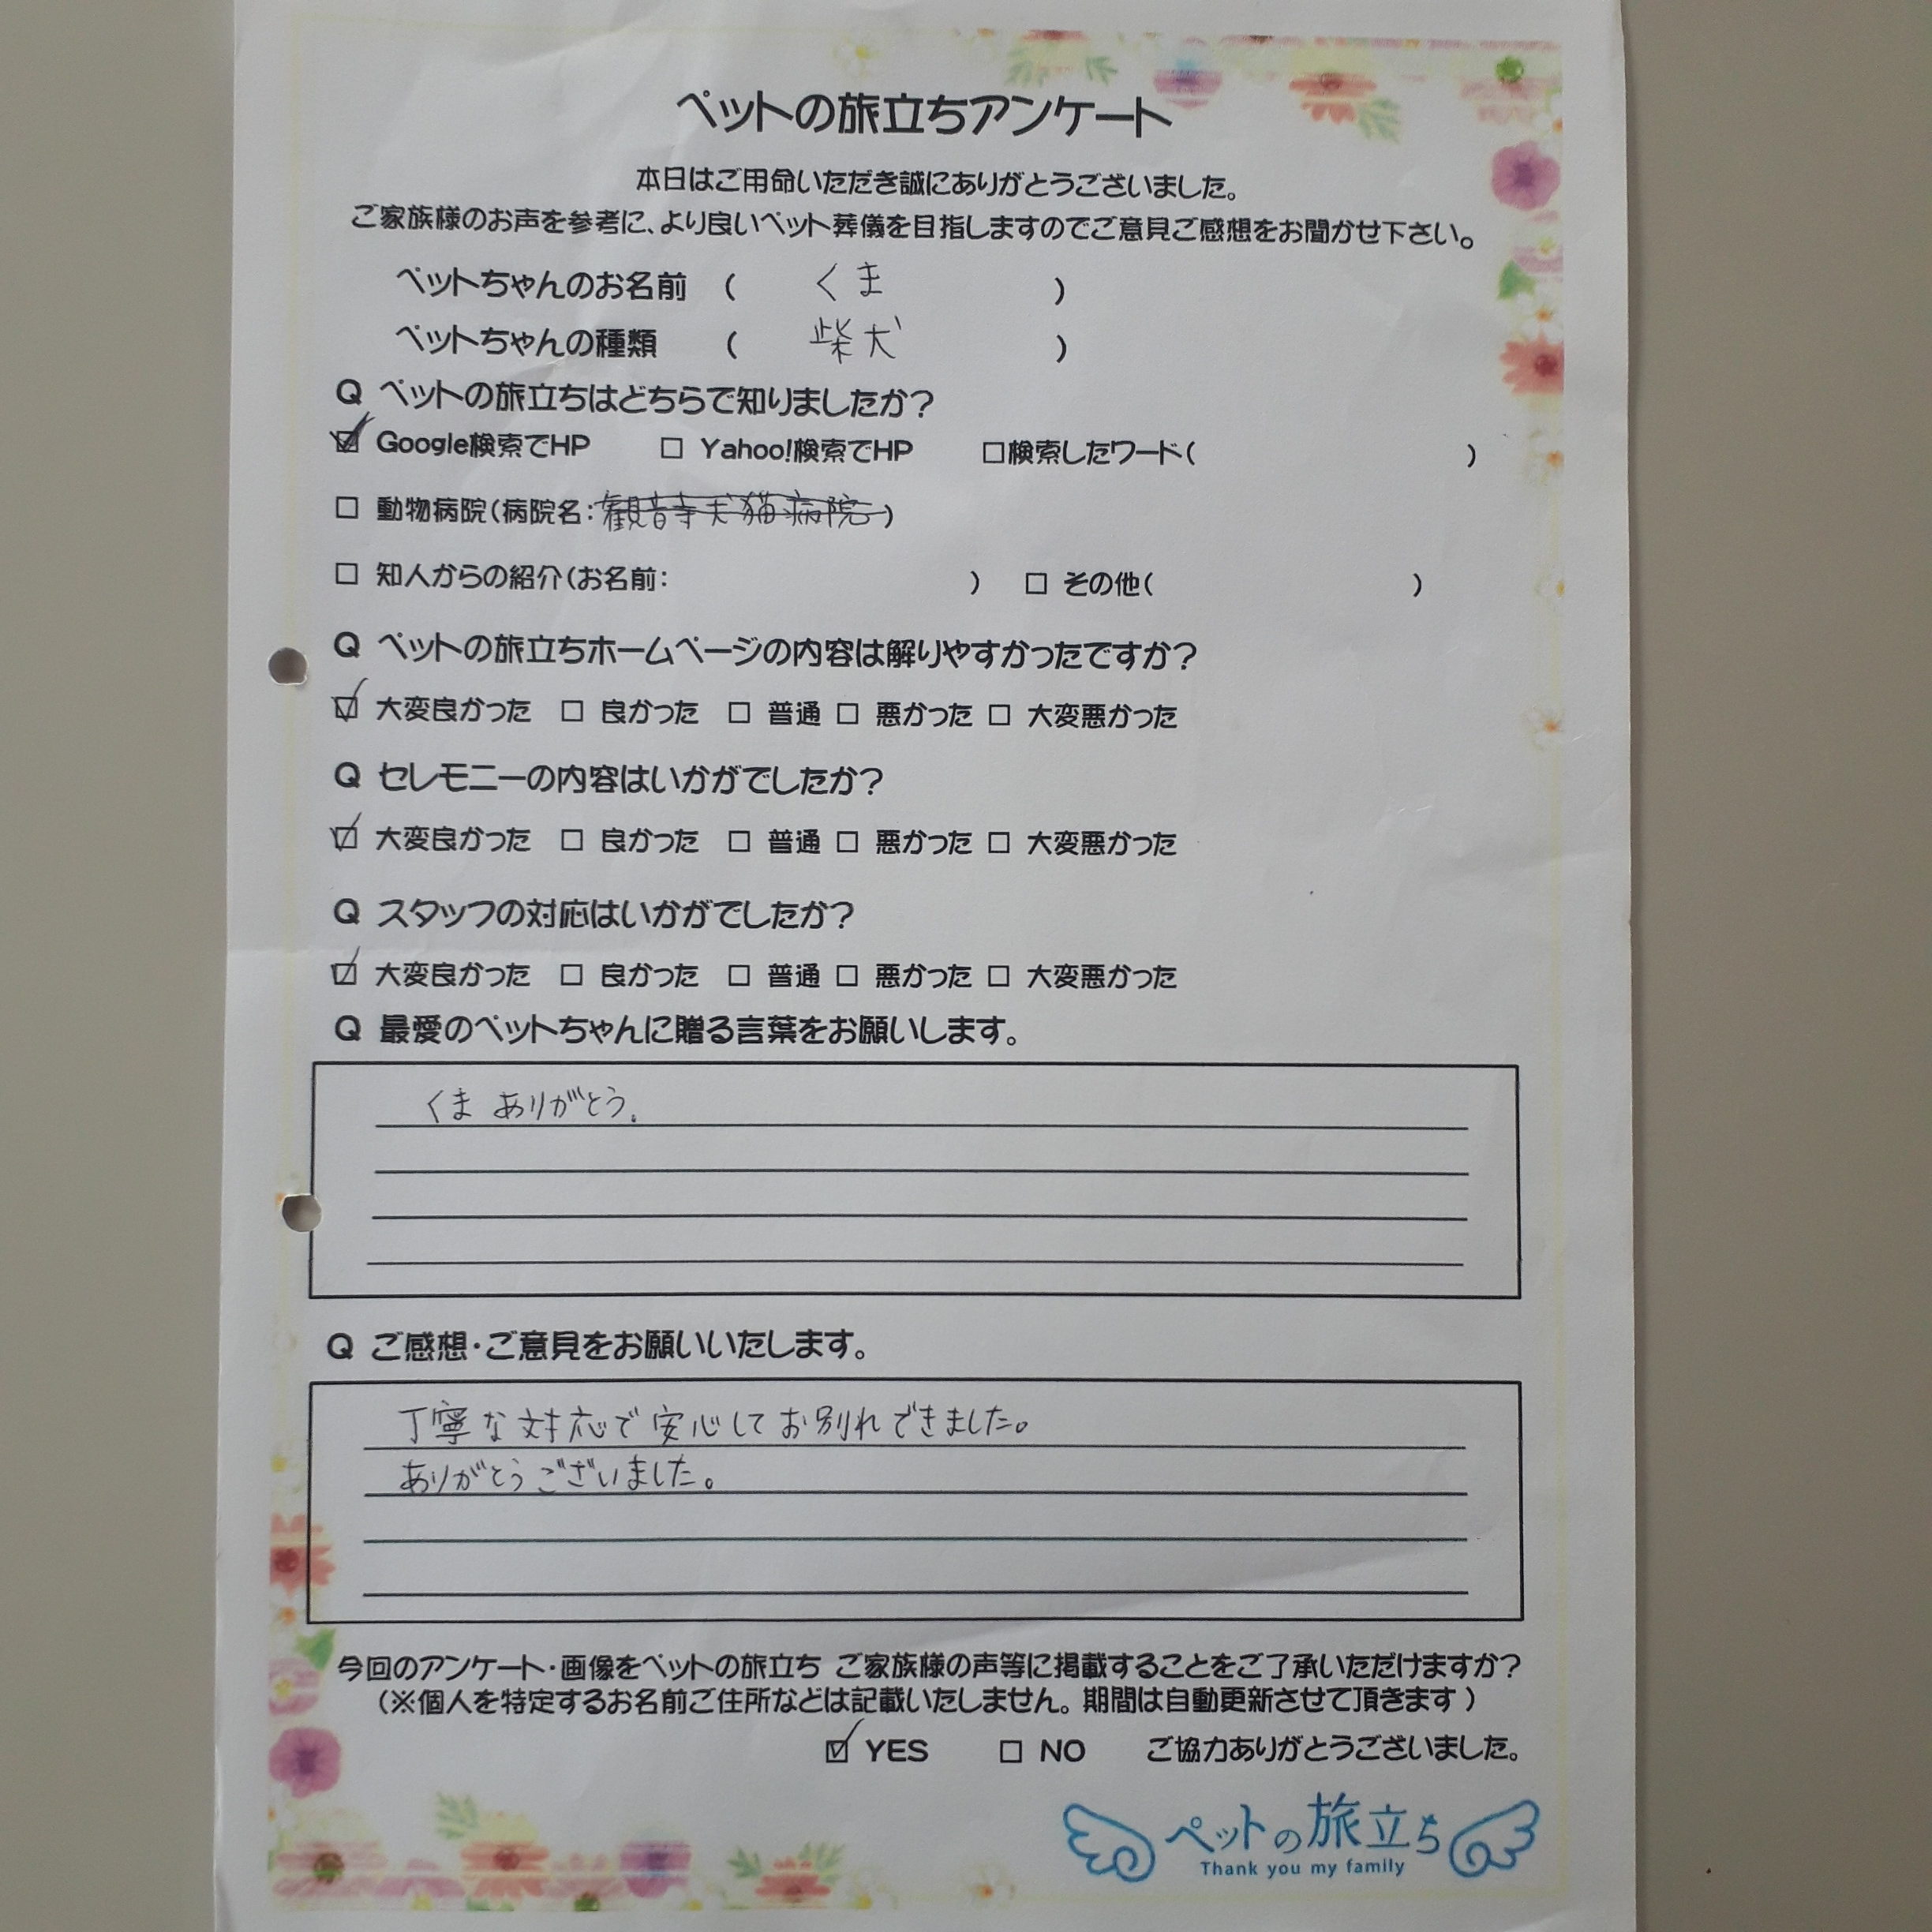 ペットの旅立ちアンケート
本日はご用命いただき誠にありがとうございました。
ご家族様のお声を参考に、より良いペット葬儀を目指しますのでご意見ご感想をお聞かせ下さい。
ペットちゃんのお名前 ( くま )
ペットちゃんの種類 ( 柴犬 )
Q ペットの旅立ちはどちらで知りましたか?
☑ Google検索でHP □ Yahoo!検索でHP □検索したワード( )
□ 動物病院(病院名:観音寺犬猫病院)
□ 知人からの紹介(お名前: ) □ その他( )
Q ペットの旅立ちホームページの内容は解りやすかったですか?
☑ 大変良かった □ 良かった □ 普通 □ 悪かった □ 大変悪かった
Q セレモニーの内容はいかがでしたか?
☑ 大変良かった □ 良かった □ 普通 □ 悪かった □ 大変悪かった
Q スタッフの対応はいかがでしたか?
☑ 大変良かった □ 良かった □ 普通 □ 悪かった □ 大変悪かった
Q 最愛のペットちゃんに贈る言葉をお願いします。
くま ありがとう。
Q ご感想・ご意見をお願いいたします。
丁寧な対応で安心してお別れできました。
ありがとうございました。
今回のアンケート・画像をペットの旅立ち ご家族様の声等に掲載することをご了承いただけますか?
(※個人を特定するお名前ご住所などは記載いたしません。期間は自動更新させて頂きます)
☑ YES □ NO ご協力ありがとうございました。
ペットの旅立ち
Thank you my family